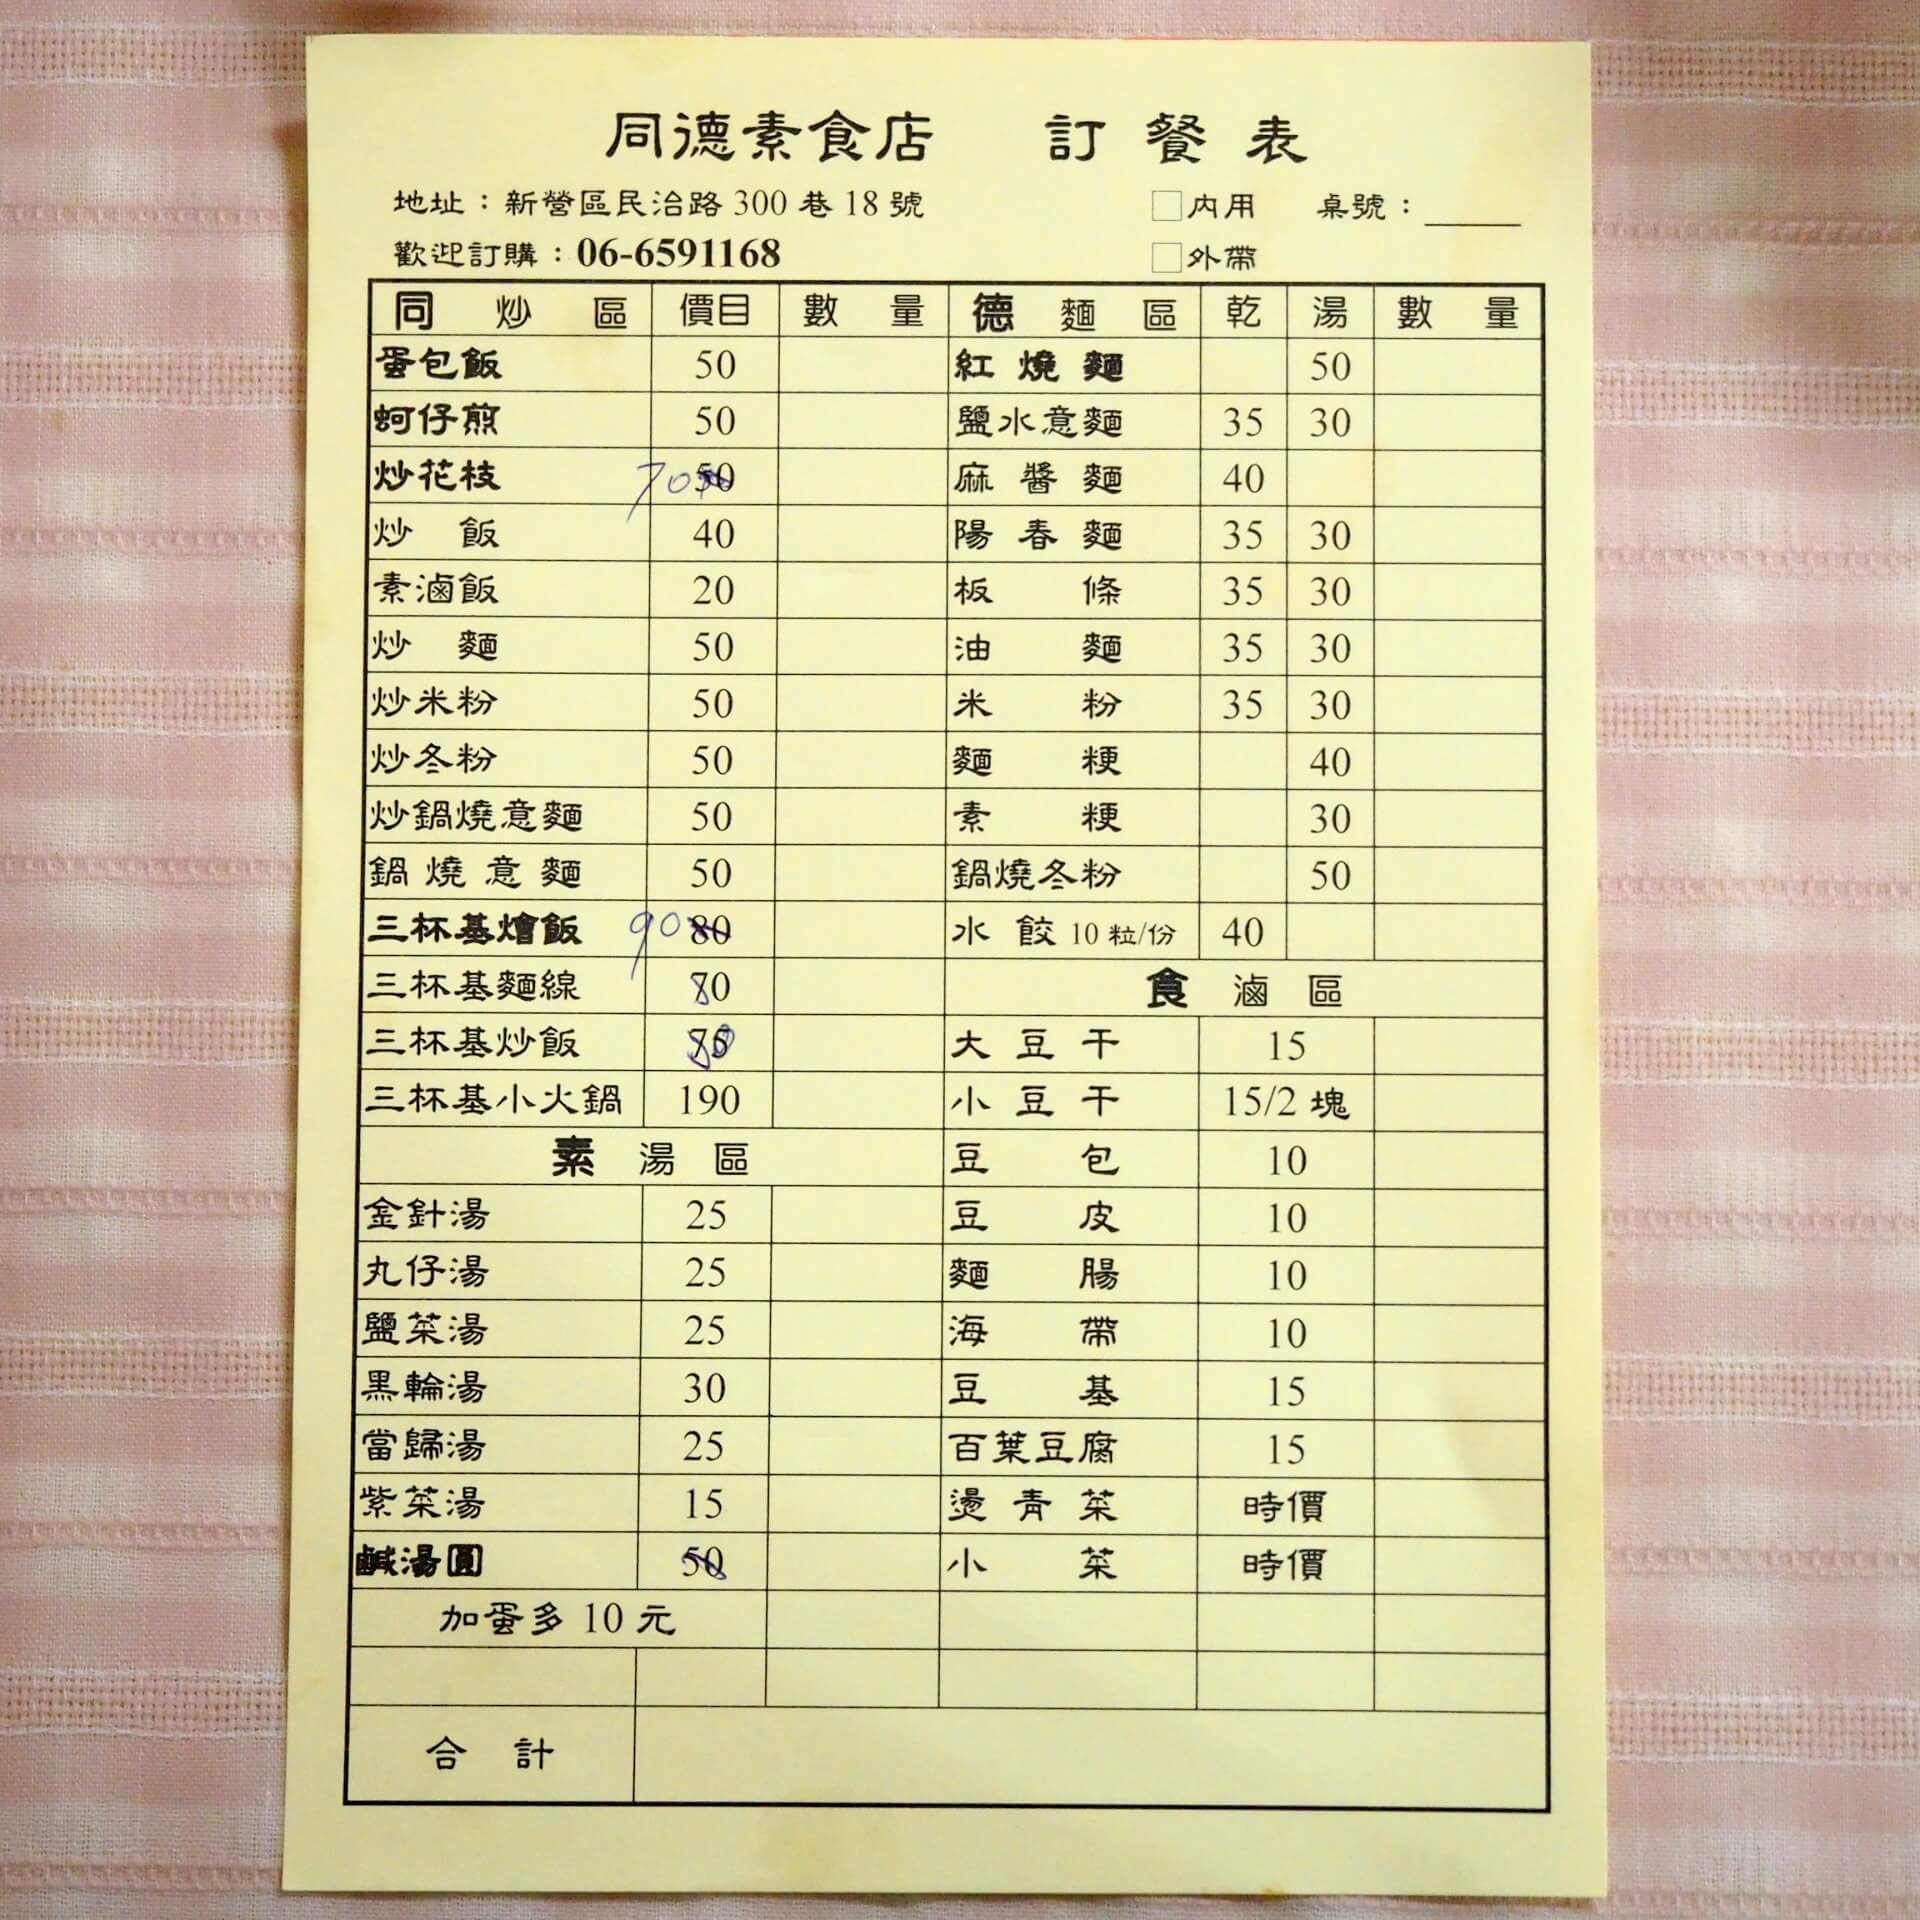 同德素食店 訂餐表
地址：新營區民治路300巷18號 □內用 桌號：
歡迎訂購：06-6591168 □外帶
同炒區 價目 數量 德麵區 乾 湯 數量
蛋包飯 50 紅燒麵 50
蚵仔煎 50 鹽水意麵 35 30
炒花枝 70 50 麻醬麵 40
炒飯 40 陽春麵 35 30
素滷飯 20 板條 35 30
炒麵 50 油麵 35 30
炒米粉 50 米粉 35 30
炒冬粉 50 麵粳 40
炒鍋燒意麵 50 素粳 30
鍋燒意麵 50 鍋燒冬粉 50
三杯基燴飯 90 80 水餃10粒/份 40
三杯基麵線 80 食滷區
三杯基炒飯 80 大豆干 15
三杯基小火鍋 190 小豆干 15/2塊
素湯區 豆包 10
金針湯 25 豆皮 10
丸仔湯 25 麵腸 10
鹽菜湯 25 海帶 10
黑輪湯 30 豆基 15
當歸湯 25 百葉豆腐 15
紫菜湯 15 燙青菜 時價
鹹湯圓 50 小菜 時價
加蛋多10元
合計